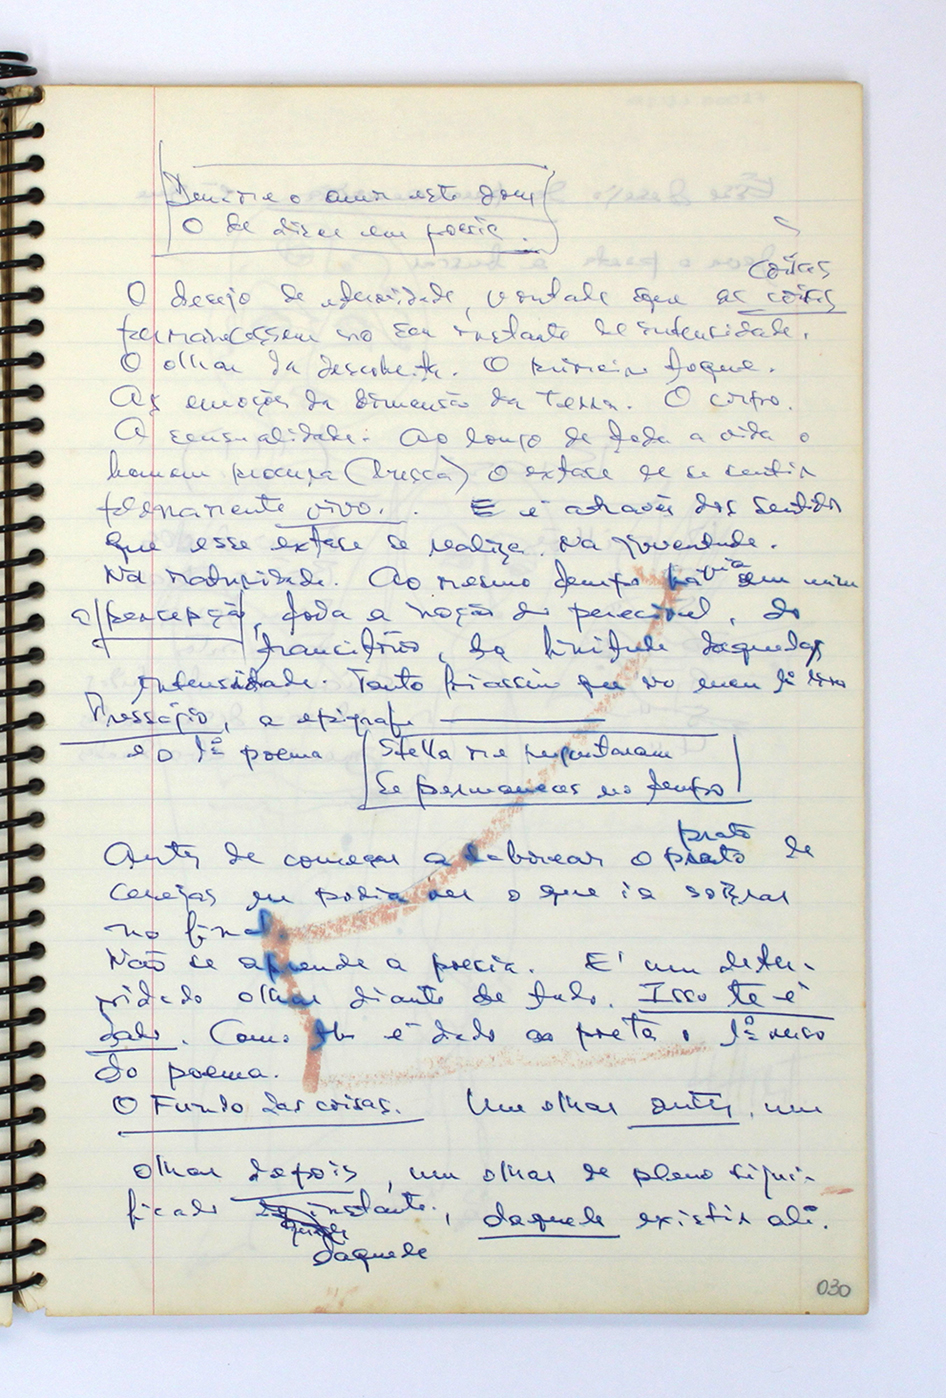 Deu-me o amor este dom
O de dizer em poesia.
coisas
O desejo de eternidade, vontade que as coisas
permanecessem no seu instante de intensidade.
O olhar da descoberta. O primeiro toque.
As emoções da dimensão da terra. O corpo.
A sensualidade. Ao longo de toda a vida o
homem procura (busca) o extase de se sentir
plenamente vivo. E é através dos sentidos
que esse extase se realiza. Na juventude.
Na maturidade. Ao mesmo tempo havia em mim
a percepção, toda a noção do perecível, do
transitório, da finitude daquela
intensidade. Tanto é assim que no meu 1º livro
Presságio, a epígrafe
e o 1º poema Stella me perguntaram
se permaneces no tempo
prato
Antes de começar a saborear o prato de
cerejas eu podia ver o que ia sobrar
no final.
Não se aprende a poesia. E' um deter-
minado olhar diante de tudo. Isso te é
dado. Como é dado ao poeta o 1º verso
do poema.
O Fundo das coisas. Um olhar antes, um
olhar depois, um olhar de pleno signi-
ficado instante, daquele existir ali.
daquele
030